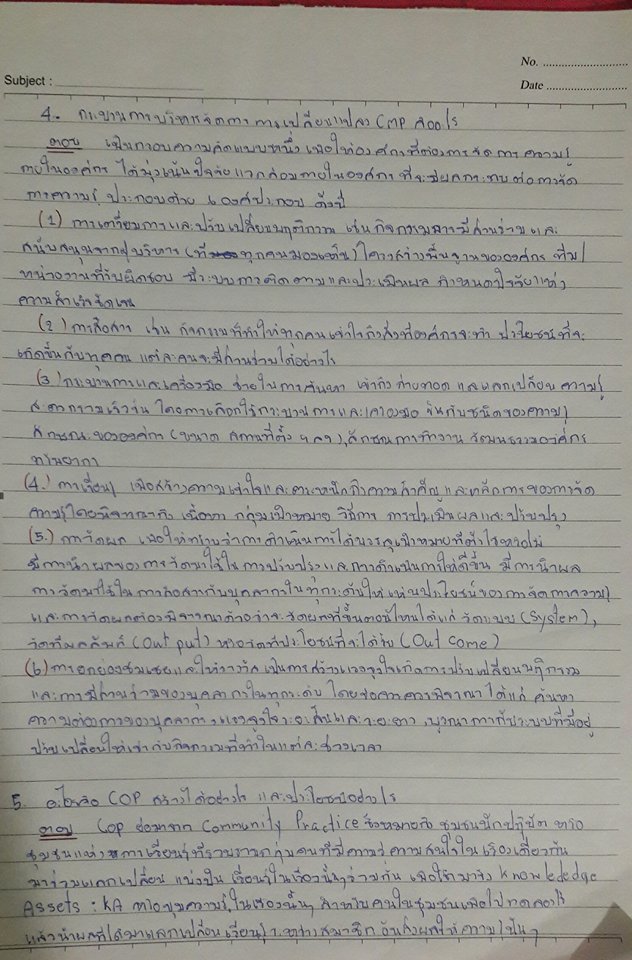 No. ............................
Subject : ............................
Date ............................
4. กระบวนการบริหารจัดการการเปลี่ยนแปลง CMP คืออะไร
ตอบ เป็นกรอบความคิดแบบหนึ่ง เพื่อให้องค์กรที่ต้องการจัดการความรู้
ภายในองค์กร ได้มุ่งเน้นปัจจัยแวดล้อมภายในองค์กร ที่จะมีผลกระทบต่อการจัด
การความรู้ ประกอบด้วย 6 องค์ประกอบ ดังนี้
(1) การเตรียมการและปรับเปลี่ยนพฤติกรรม เช่น กิจกรรมการมีส่วนร่วมและ
สนับสนุนจากผู้บริหาร (ที่ทุกคนมองเห็น) โครงสร้างพื้นฐานขององค์กร ทีม/
หน่วยงานที่รับผิดชอบ มีระบบการติดตามและประเมินผล กำหนดปัจจัยแห่ง
ความสำเร็จชัดเจน
(2) การสื่อสาร เช่น กิจกรรมที่ทำให้ทุกคนเข้าใจถึงสิ่งที่องค์กรจะทำ ประโยชน์ที่จะ
เกิดขึ้นกับทุกคน แต่ละคนจะมีส่วนร่วมได้อย่างไร
(3) กระบวนการและเครื่องมือ ช่วยในการค้นหา เข้าถึง ถ่ายทอด และแลกเปลี่ยน ความรู้
สะดวกรวดเร็วขึ้น โดยการเลือกใช้กระบวนการและเครื่องมือ ขึ้นกับชนิดของความรู้
ลักษณะขององค์กร (ขนาด สถานที่ตั้ง ฯลฯ), ลักษณะการทำงาน วัฒนธรรมองค์กร
ทรัพยากร
(4.) การเรียนรู้ เพื่อสร้างความเข้าใจและตระหนักถึงความสำคัญ และหลักการของการจัด
ความรู้ โดยพิจารณาถึง เนื้อหา กลุ่มเป้าหมาย วิธีการ การประเมินผลและปรับปรุง
(5.) การวัดผล เพื่อให้ทราบว่าการดำเนินการได้บรรลุเป้าหมายที่ตั้งไว้หรือไม่
มีการนำผลของการวัดมาใช้ในการปรับปรุงและการดำเนินการให้ดีขึ้น มีการนำผล
การวัดมาใช้ในการสื่อสารกับบุคลากรในทุกระดับให้เห็นประโยชน์ของการจัดการความรู้
และการวัดผลต้องพิจารณาด้วยว่าจะวัดผลที่ขั้นตอนไหนได้แก่ วัดระบบ (System),
วัดที่ผลลัพธ์ (Out put) หรือวัดที่ประโยชน์ที่จะได้รับ (Out Come)
(6) การยกย่องชมเชยและให้รางวัล เป็นการสร้างแรงจูงใจเกิดการปรับเปลี่ยนพฤติกรรม
และการมีส่วนร่วมของบุคลากรในทุกระดับ โดยข้อควรพิจารณา ได้แก่ ค้นหา
ความต้องการของบุคลากร, แรงจูงใจระยะสั้นและระยะยาว, บูรณาการกับระบบที่มีอยู่
ปรับเปลี่ยนให้เข้ากับกิจกรรมที่ทำในแต่ละช่วงเวลา
5. อะไรคือ COP สร้างได้อย่างไร และประโยชน์อย่างไร
ตอบ COP ย่อมาจาก Community Practice ซึ่งหมายถึง ชุมชนนักปฏิบัติ หรือ
ชุมชนแห่งการเรียนรู้ที่รวบรวมกลุ่มคนที่มีความรู้ความสนใจในเรื่องเดียวกัน
มาร่วมแลกเปลี่ยน แบ่งปัน เรียนรู้ในเรื่องนั้นๆ ร่วมกัน เพื่อให้ได้มาซึ่ง knowlededge
Assets : KA หรือขุมความรู้ ในเรื่องนั้นๆ สำหรับคนในชุมชนเพื่อไปทดลองใช้
แล้วนำผลที่ได้มาแลกเปลี่ยนเรียนรู้ ระหว่างสมาชิก อันส่งผลให้ความรู้นั้นๆ